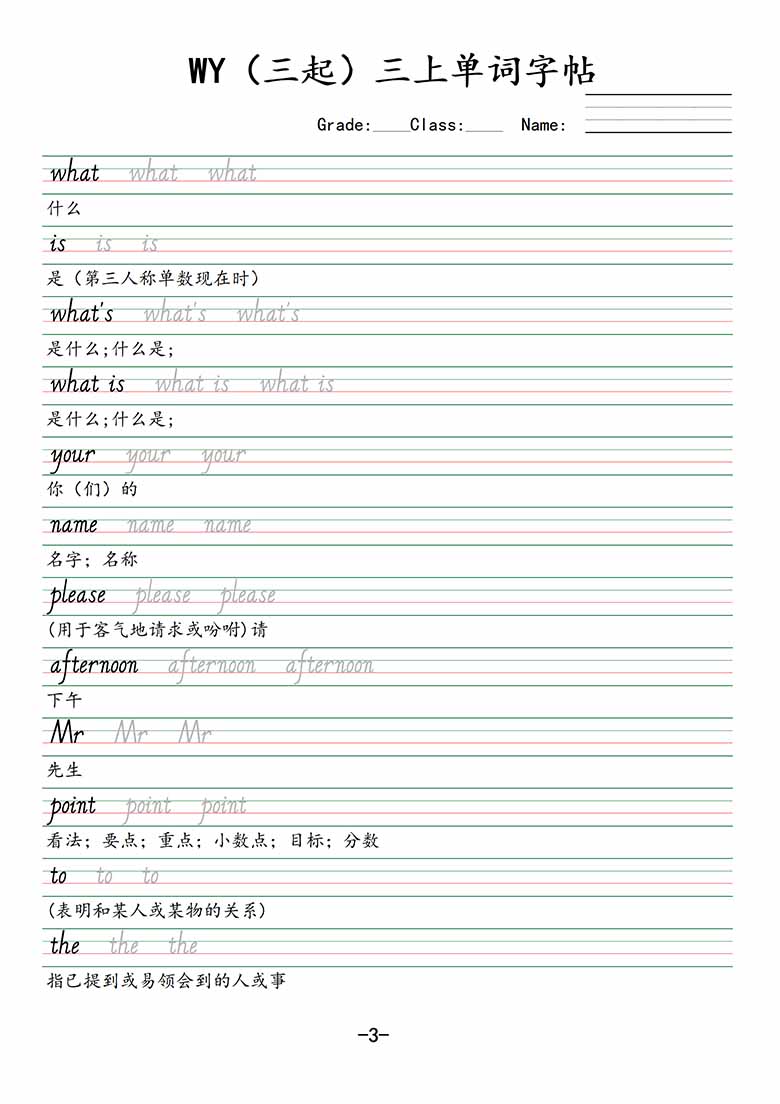 WY（三起）三上单词字帖
Grade:____Class:____ Name:
what what what
什么
is is is
是（第三人称单数现在时）
what's what's what's
是什么;什么是;
what is what is what is
是什么;什么是;
your your your
你（们）的
name name name
名字；名称
please please please
(用于客气地请求或吩咐)请
afternoon afternoon afternoon
下午
Mr Mr Mr
先生
point point point
看法；要点；重点；小数点；目标；分数
to to to
(表明和某人或某物的关系)
the the the
指已提到或易领会到的人或事
-3-